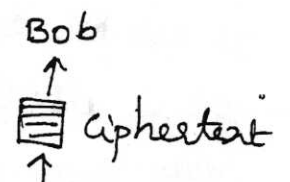 Bob
Ciphertext